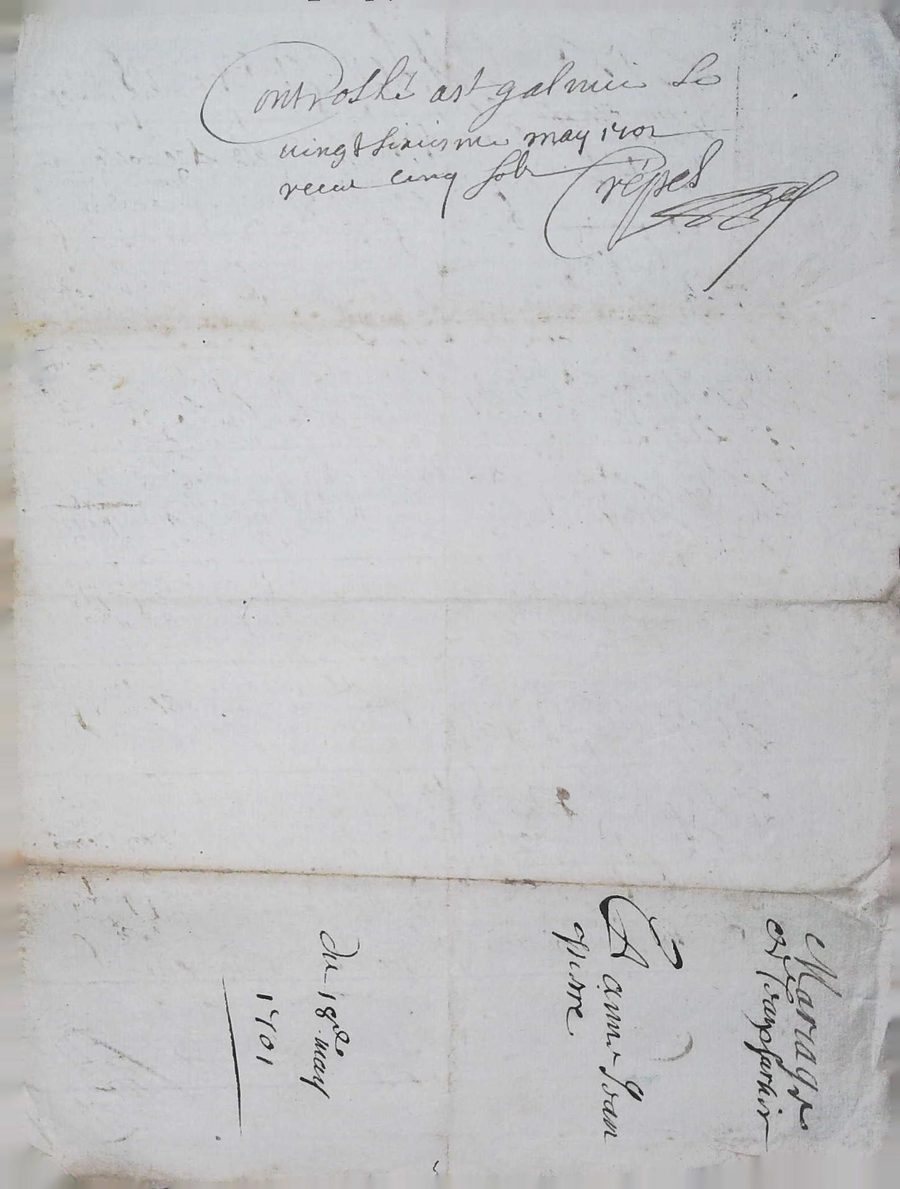 Controllé a st galmier le
vingt sixiesme may 1701
receu cinq sols Crépet
Mariage
de
Et Anne Jean
pierre
du 18e may
1701